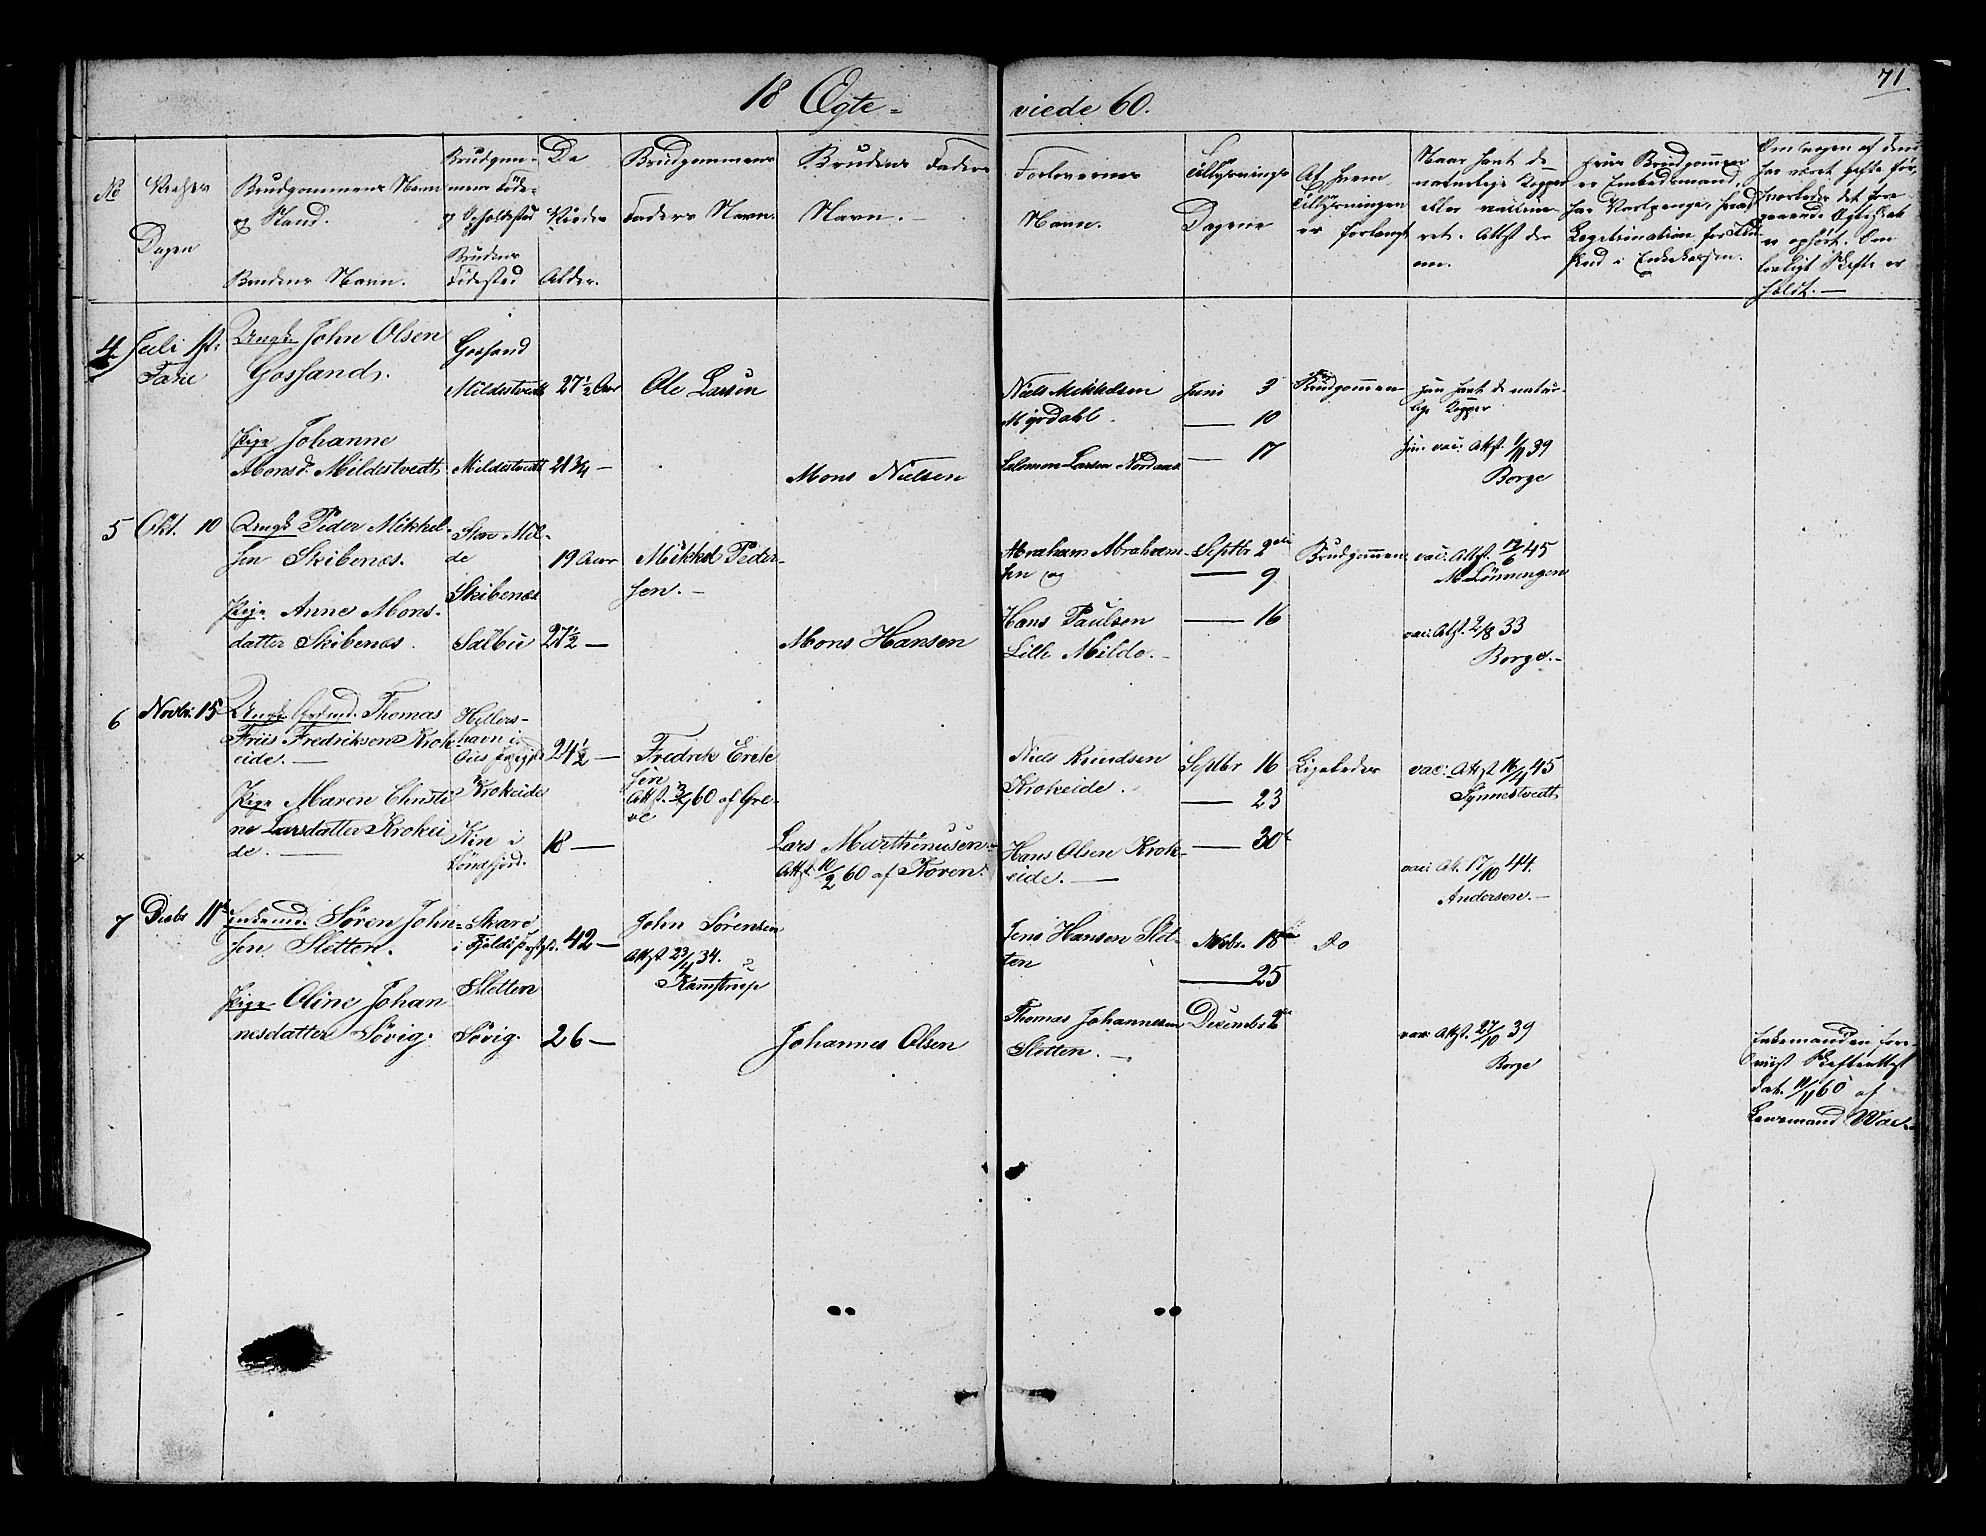 18 Ægte-
viede 60.
71
No
Vielses
Dagen
Brudgommens Navn
og Stand.
Brudens Navn.
Brudgom-
mens Føde-
og Opholdssted
Brudens
Fødested
De
Viedes
Alder.
Brudgommens
Faders Navn.
Brudens Faders
Navn.
Forlovernes
Navn.
Tillysnings
Dagene
Af hvem
Tillysningen
er forlangt
Naar havt de
naturlige Kopper
eller vaccine-
ret. Attest der
om.
Hvis Brudgommen
er Embedsmand,
Om nogen af dem
har været gifte før,
er ophørt. Om
lovligt Skifte er
holdt.
4 Juli 1st
Fane
Ungk. John Olsen
Gossand.
Pige Johanne
Monsd. Mildestvedt
Gossand
Mildestvedt
Mildestvedt
27½ Aar
21¾ —
Ole Larsen
Mons Nielsen
Niels Mikkelsen
Myrdahl.
Salomon Larsen Nordaas
Juni 3
— 10
— 17
Brudgommen
Han havt de natur-
lige Kopper
Hun vac: Attst. 1/11 39
Borge
5 Okt. 10
Ungk Peder Mikkel-
sen Skibenes.
Pige Anne Mons-
datter Skibenes.
Store Mil-
de
Skibenes
Salbu
19 Aar
27½ —
Mikkel Peder-
sen. —
Mons Hansen
Abraham Abraham-
sen og
Hans Paulsen
Lille Milde. —
Septbr 2den
— 9
— 16
Brudgommen
vac: Attst. 12/6 45
M. Lönningen
vac: Attst. 2/8 33
Borge. —
6 Novbr. 15
Ungk. Thomas
Friis Fredriksen Krok-
eide. —
Pige Maren Christi
ne Larsdatter Krokei
de. —
Hellers-
havn i
Krokeide
Kin i
Söndfjord.
24½ —
18 —
Fredrik Erik
sen
Attst. 3/4 60 af Gre-
ve
Lars Marthinusen
Attst. 11/2 60 af Koren.
Niels Knudsen
Krokeide.
Hans Olsen Krok-
eide. —
Septbr 16
— 23
— 30
Ligeledes
vac: Attst 16/4 45
Synnestvedt
vac: At. 17/10 44.
Andersen. —
7 Decbr 11te
Enkemd. Sören John-
sen Sletten.
Pige Oline Johan
nesdatter Sövig.
Skaro
i Fjelds
Sletten
Sövig.
42 —
26 —
John Sörensen
Attst 23/4 34.
Kamstrup
Johannes Olsen
Jens Hansen Slet-
ten
Thomas Johannesen
Sletten. —
Novbr. 18
— 25
Decembr 2
Do
vac Attst. 27/10 39
Borge
Enkemanden fore-
viist Skifteattest
dat. 11/11 60 af
Lensmand